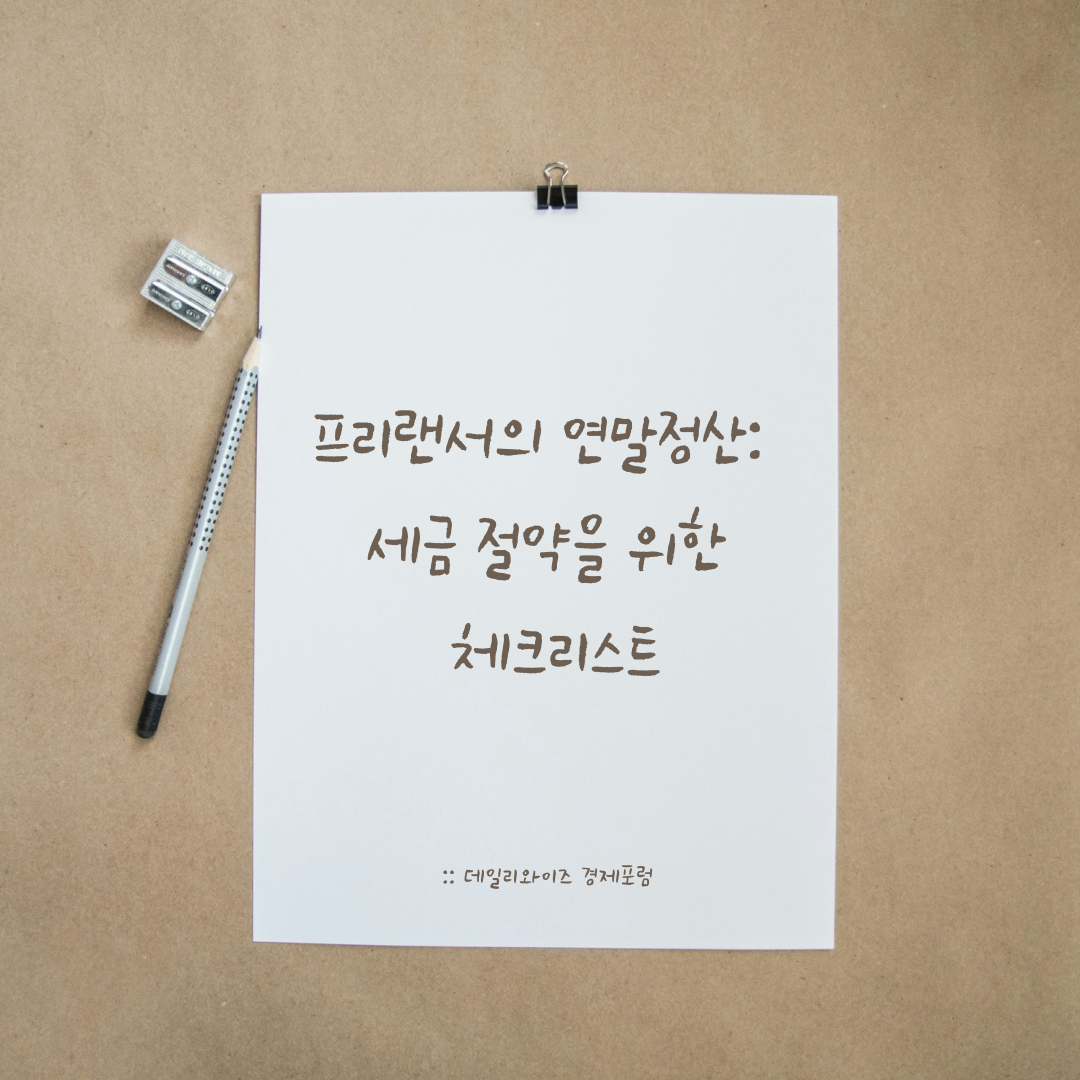 프리랜서의 연말정산:
세금 절약을 위한
체크리스트
:: 데일리와이즈 경제포럼